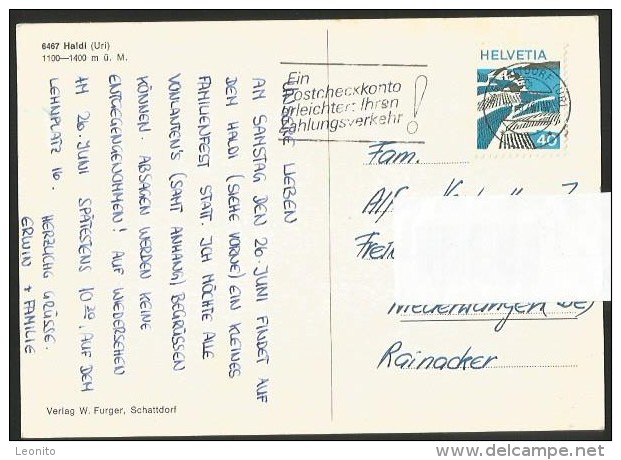 6467 Haldi (Uri)
1100—1400 m ü. M.
HELVETIA
40
Ein
Postcheckkonto
erleichtert Ihren
Zahlungsverkehr
!
UNSERE LIEBEN
AM SAMSTAG DEN 26. JUNI FINDET AUF
DEM HALDI (SIEHE VORNE) EIN KLEINES
FAMILIENFEST STATT. ICH MÖCHTE ALLE
VONLANTEN'S (SAMT ANHANG) BEGRÜSSEN
KÖNNEN. ABSAGEN WERDEN KEINE
ENTGEGENGENOMMEN! AUF WIEDERSEHEN
AM 26. JUNI SPÄTESTENS 10 30, AUF DEM
LEHNPLATZ 16. HERZLICHE GRÜSSE.
ERWIN + FAMILIE
Fam.
Rainacker
Verlag W. Furger, Schattdorf
Leonito
www.delcampe.net